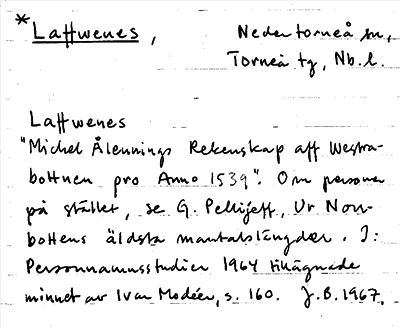 *Laffwenes, Nedertorneå sn,
Torneå tg, Nb. l.
Laffwenes
"Michel Ålennings Rekenskap aff Westra-
bottnen pro Anno 1539". Om personer
på stället, se G. Pellijeff, Ur Norr-
bottens äldsta mantalslängder. I:
Personnamnsstudier 1964 tillägnade
minnet av Ivar Modéer, s. 160. J.B. 1967.